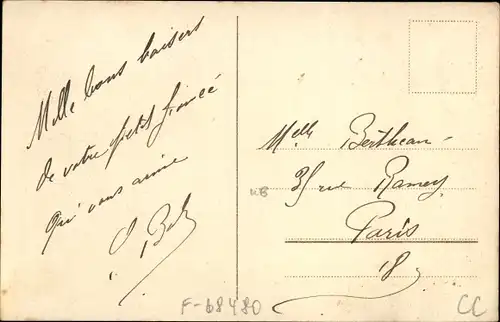 Mille bons baisers
de votre petit fiancé
qui vous aime
Melle Bertheau
35 rue Ramey
Paris
18
KB
F-68480
CC